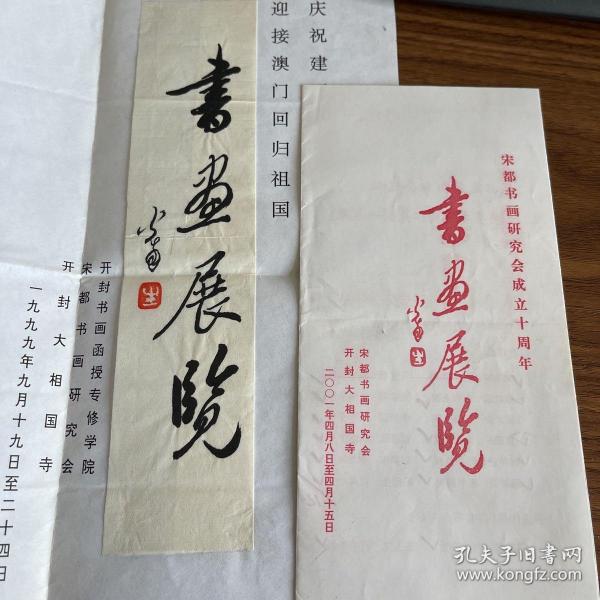 庆祝建
迎接澳门回归祖国
書畫展覽
开封书画函授专修学院
宋都书画研究会
开封大相国寺
一九九九年九月十九日至二十四日
宋都书画研究会成立十周年
書畫展覽
宋都书画研究会
开封大相国寺
二〇〇一年四月八日至四月十五日
孔夫子旧书网
www.kongfz.com